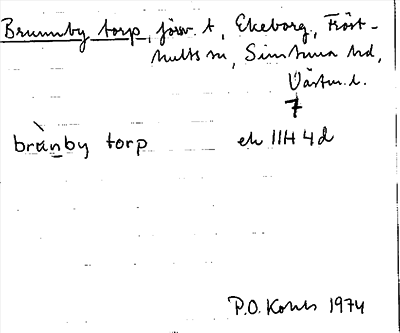 Brunnby torp, försv. t, Ekeborg, Tröst-
hults sn, Simtuna hd,
Västm. l.
7
brùnby torp ek 11H 4d
P.O. 1974